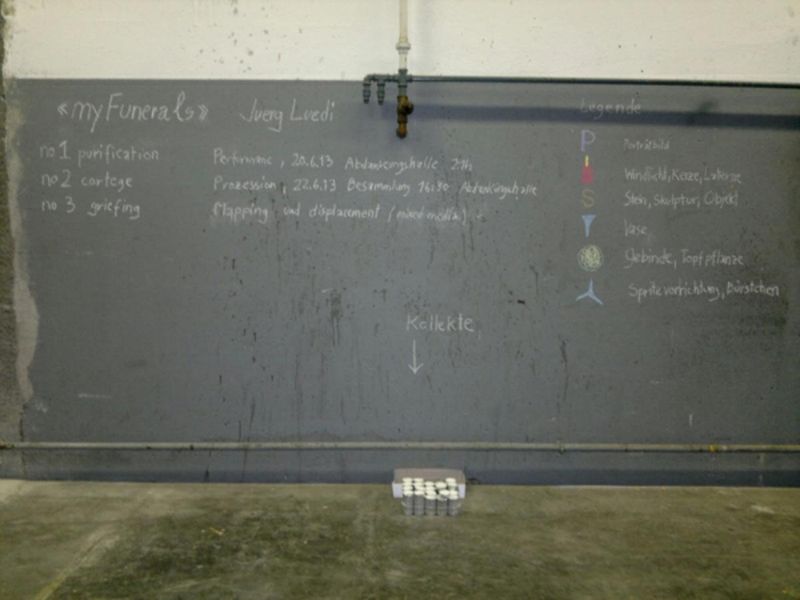 «myFunerals» Juerg Luedi
no 1 purification Performance, 20.6.13 Abdankungshalle 21h
no 2 cortege Prozession, 22.6.13 Besammlung 16:30 Abdankungshalle
no 3 griefing Mapping and displacement (mixed media)
Legende
P Porträtbild
Windlicht, Kerze, Laterne
S Stein, Skulptur, Objekt
Vase
Gebinde, Topfpflanze
Spritzvorrichtung, Bürstchen
Kollekte